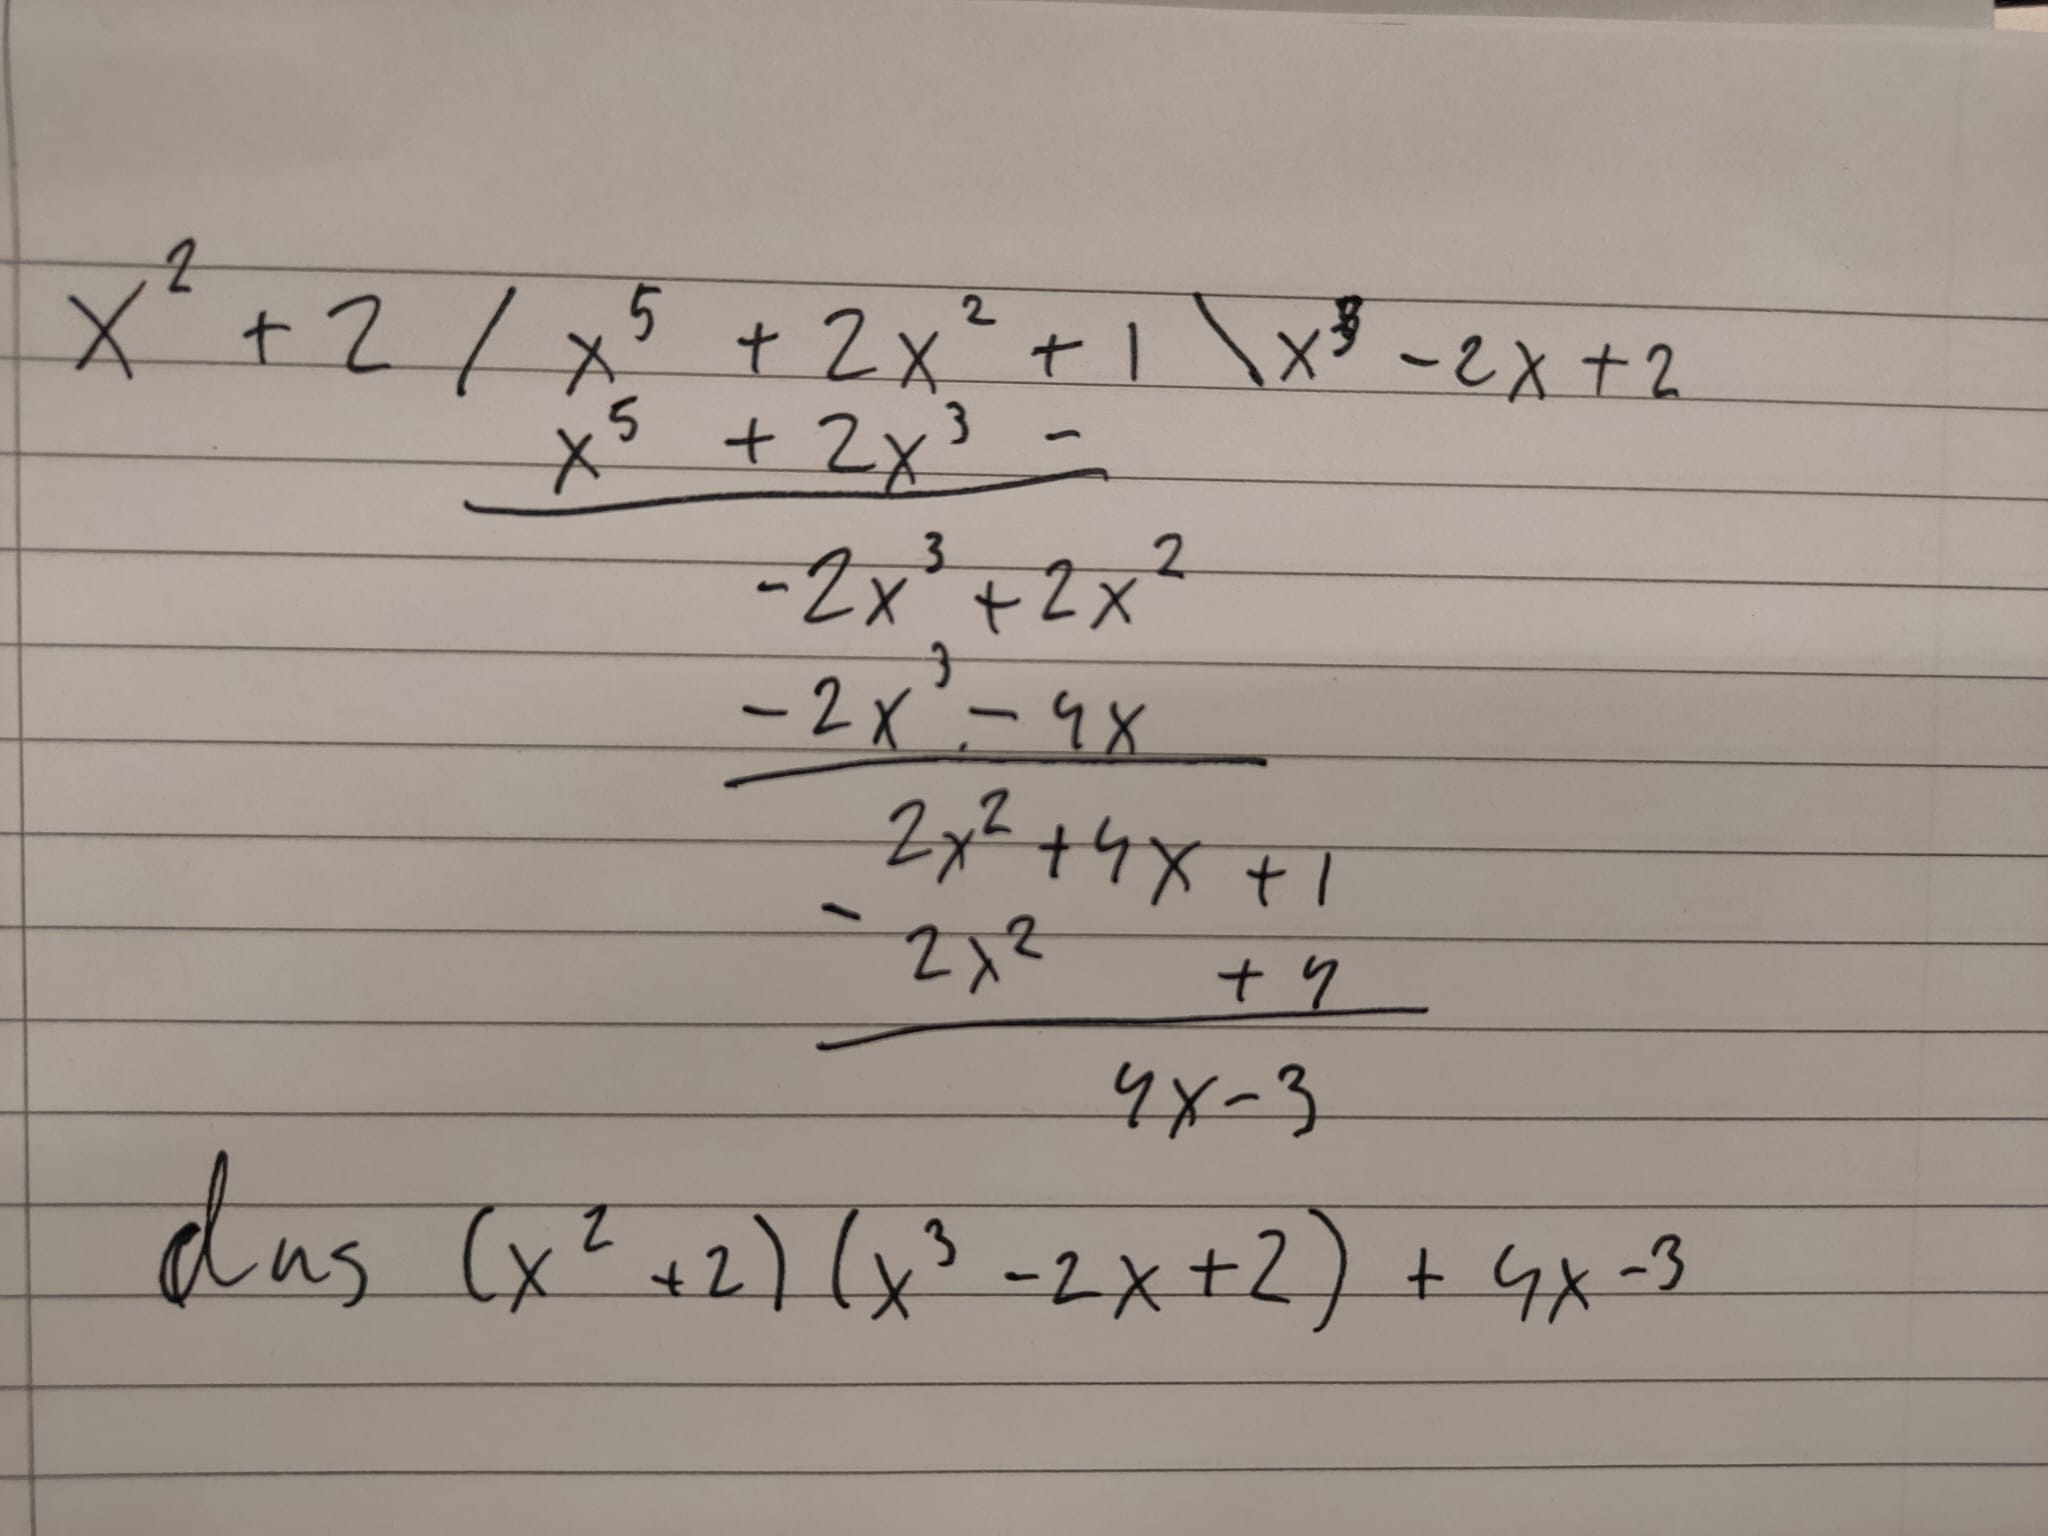 x² + 2 / x⁵ + 2x² + 1 \ x³ - 2x + 2
x⁵ + 2x³ -
-2x³ + 2x²
-2x³ - 4x
2x² + 4x + 1
- 2x² + 4
4x - 3
dus (x² + 2) (x³ - 2x + 2) + 4x - 3